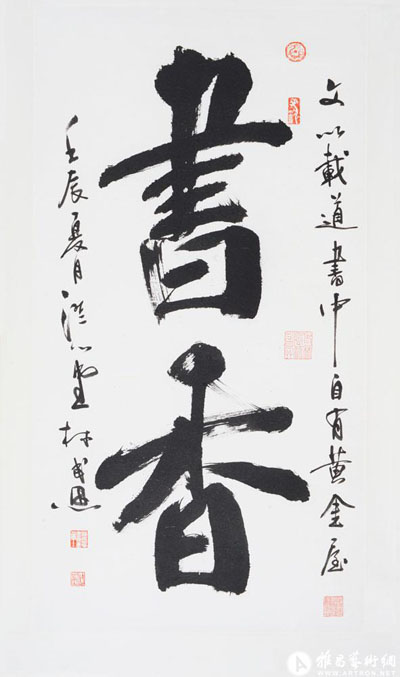 文以載道書中自有黄金屋
書香
壬辰夏月 心堂林
雅昌藝術網
WWW.ARTRON.NET